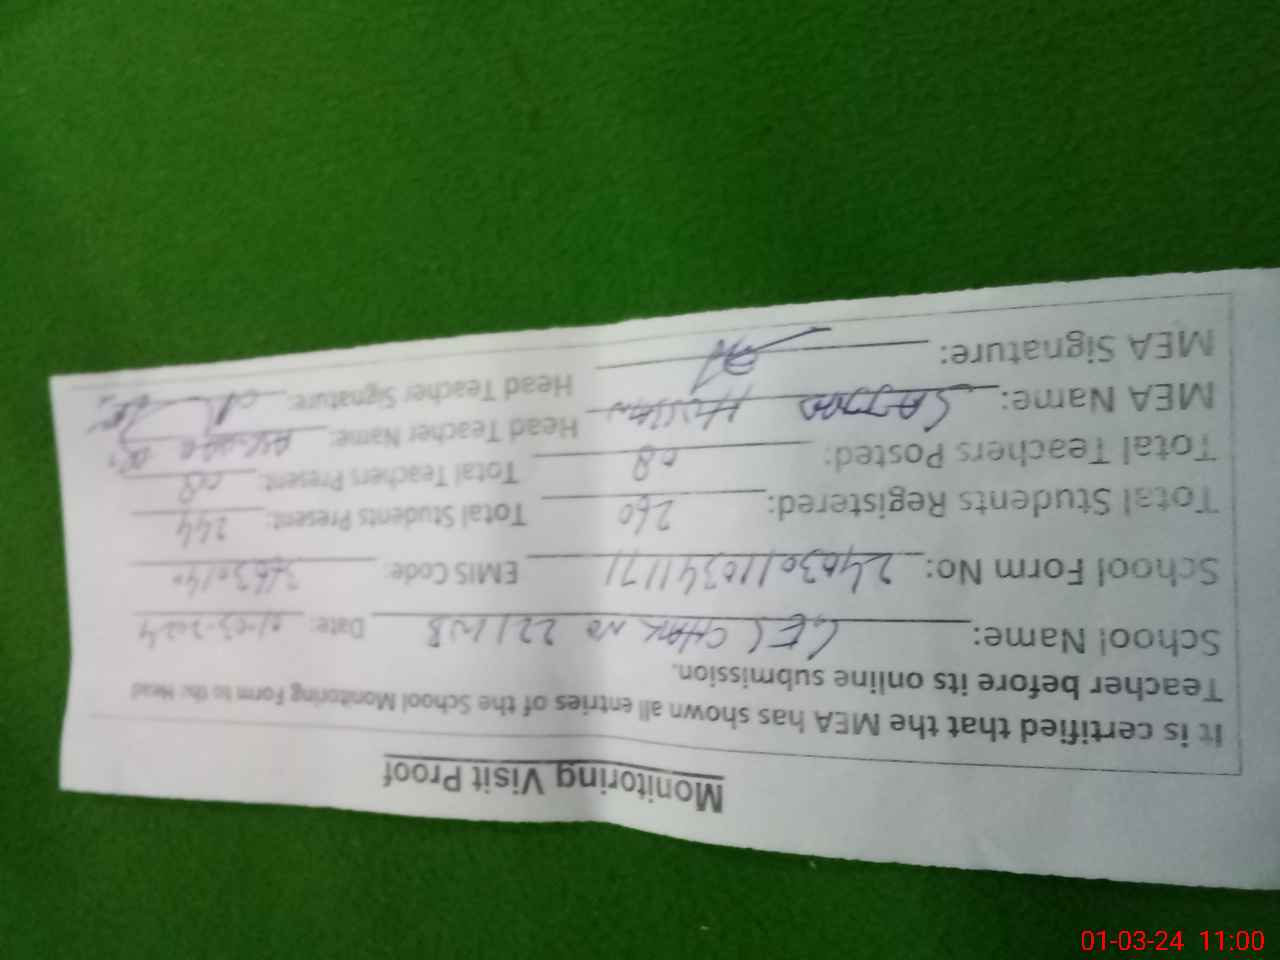 Monitoring Visit Proof
It is certified that the MEA has shown all entries of the School Monitoring Form to the Head
Teacher before its online submission.
School Name: GES CHAK NO 221/WB Date: 01-03-2024
School Form No: 24030110341171 EMIS Code:
Total Students Registered: 260 Total Students Present: 244
Total Teachers Posted: 08 Total Teachers Present: 08
MEA Name: SAJJAD HUSSAIN Head Teacher Name:
MEA Signature: Head Teacher Signature:
01-03-24 11:00